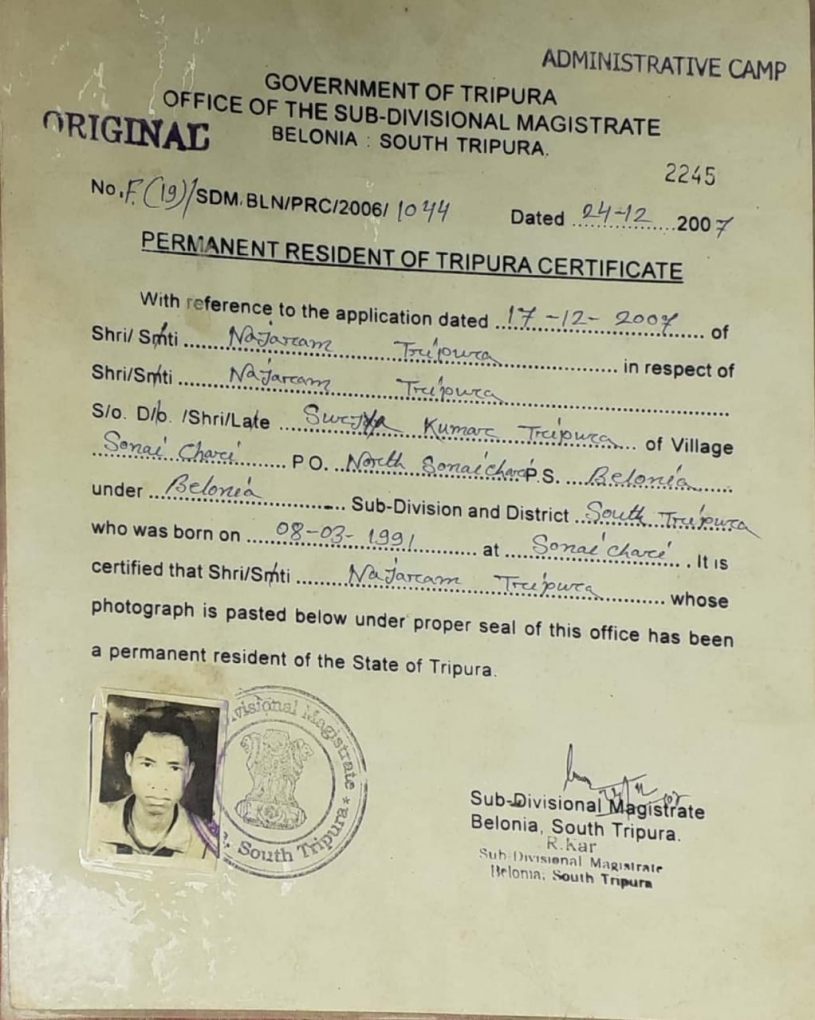 ADMINISTRATIVE CAMP
GOVERNMENT OF TRIPURA
OFFICE OF THE SUB-DIVISIONAL MAGISTRATE
ORIGINAL
BELONIA : SOUTH TRIPURA.
2245
No. F. (19)/SDM. BLN/PRC/2006/ 1044 Dated 24-12 2007
PERMANENT RESIDENT OF TRIPURA CERTIFICATE
With reference to the application dated 17-12-2007 of
Shri/ Smti Najaram Tripura in respect of
Shri/Smti Najaram Tripura
S/o. D/o. /Shri/Late Kumar Tripura of Village
Sonai Chari P O. North Sonaichari P.S. Belonia
under Belonia Sub-Division and District South Tripura
who was born on 08-03-1991 at Sonai chari. It is
certified that Shri/Smti Najaram Tripura whose
photograph is pasted below under proper seal of this office has been
a permanent resident of the State of Tripura.
visional Magistrate
South Tripura
Sub-Divisional Magistrate
Belonia, South Tripura.
R. Kar
Sub Divisional Magistrate
Belonia, South Tripura